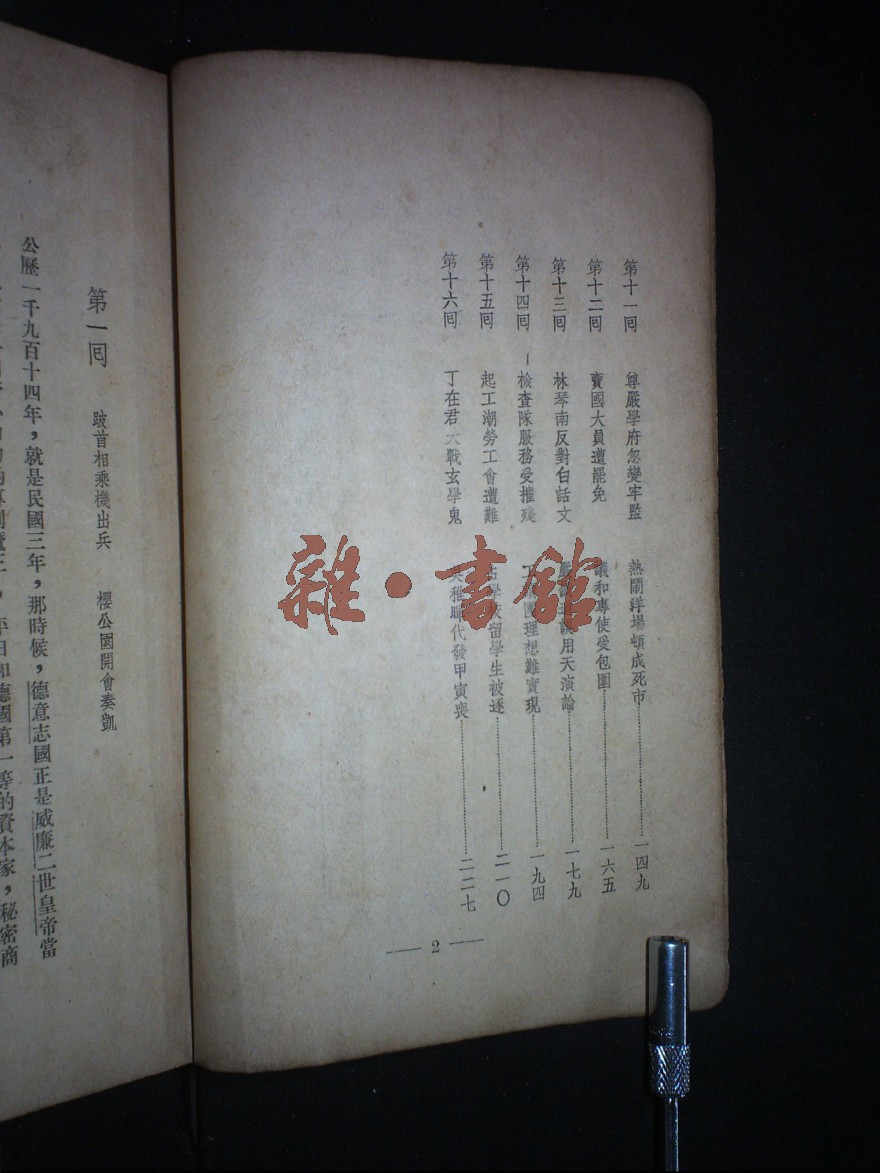 第十一囘 尊嚴學府忽變牢監 熱鬧洋場頓成死市 一四九
第十二囘 賣國大員遭罷免 議和專使受包圍 一六五
第十三囘 林琴南反對白話文 用天演論 一七九
第十四囘 檢查隊服務受摧殘 理想難實現 一九四
第十五囘 起工潮勞工會遭難 留學生被逐 二一〇
第十六囘 丁在君大戰玄學鬼 代發甲寅喪 二二七
2
第一囘 跛首相乘機出兵 櫻公園開會奏凱
公歷一千九百十四年，就是民國三年，那時候，德意志國正是威廉二世皇帝當
德國第一等的資本家，秘密商
雜·書館